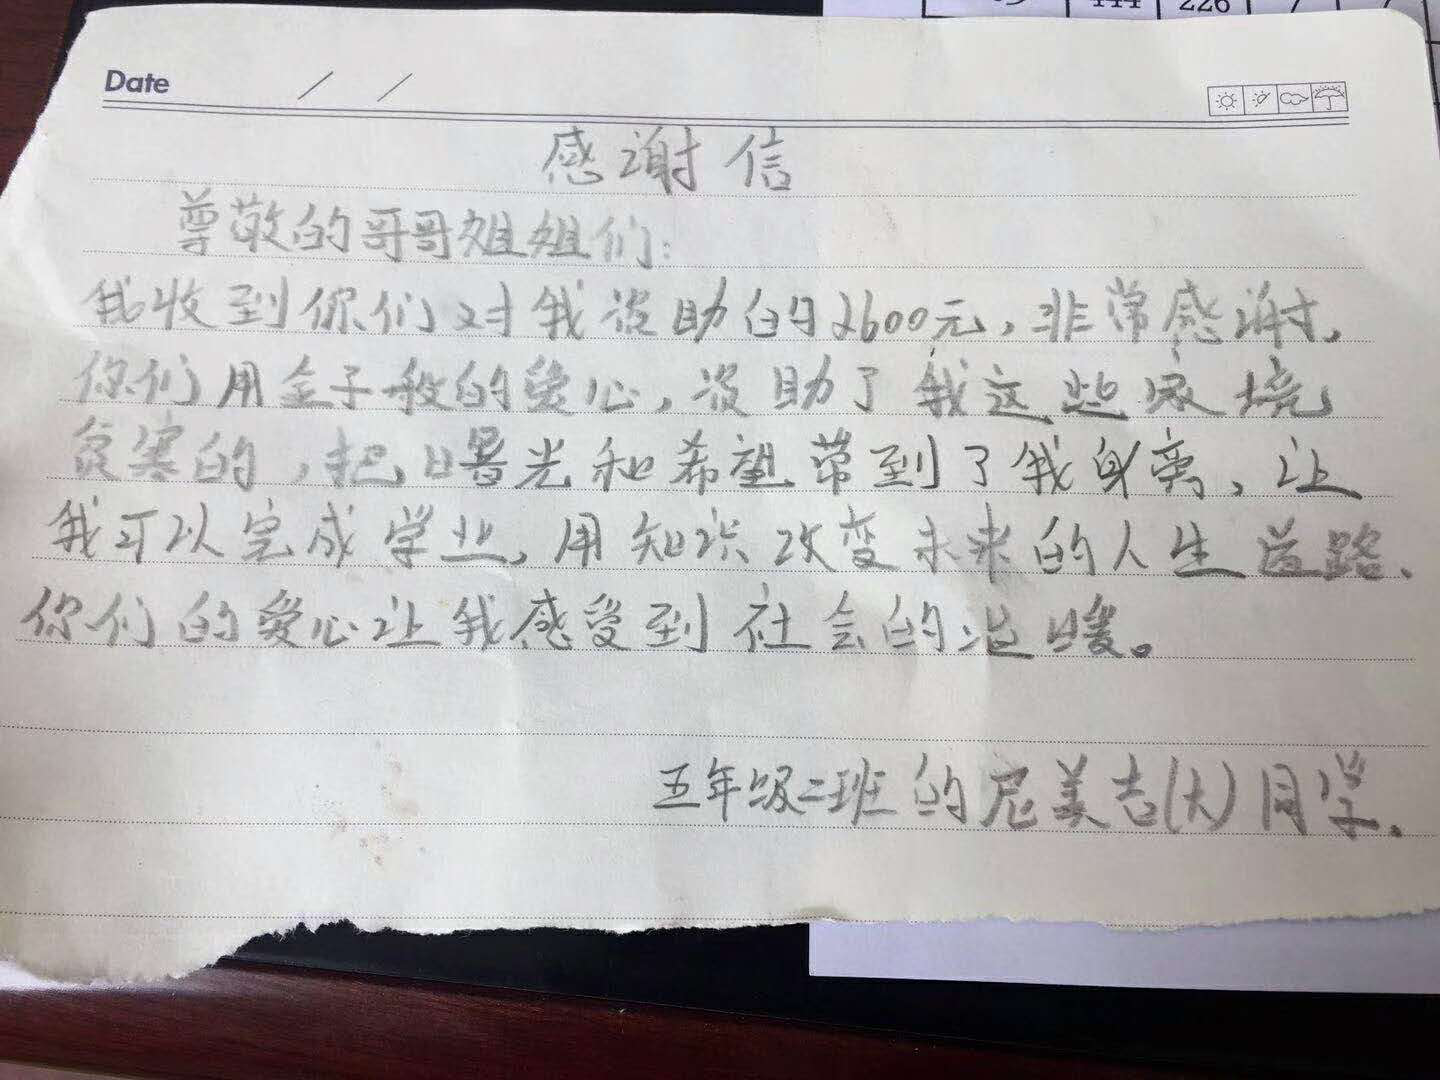 226
Date / /
感谢信
尊敬的哥哥姐姐们:
我收到你们对我资助的2600元,非常感谢,
你们用金子般的爱心,资助了我这些家境
贫寒的,把曙光和希望带到了我身离,让
我可以完成学业,用知识改变未来的人生道路、
你们的爱心让我感受到社会的温暖。
五年级二班的尼美吉(大)同学.